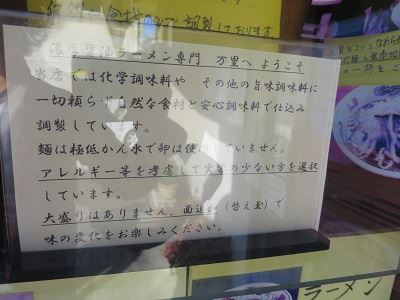 調製しております
濃厚醤油ラーメン専門 万里へ ようこそ
当店では化学調味料や その他の旨味調味料に
一切頼らず自然な食材と安心調味料で仕込み
調製しています。
麺は極低かん水で卵は使用していません。
アレルギー等を考慮して実害の少ない方を選択
しています。
大盛りはありません、面追加(替え玉)で
味の変化をお楽しみください。
ラーメン